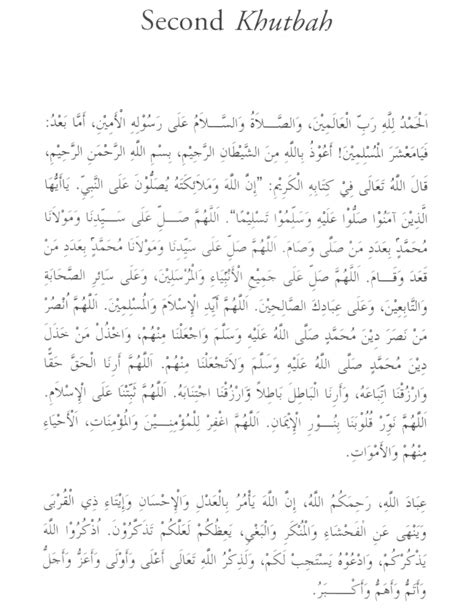 Second Khutbah
اَلْحَمْدُ لِلَّهِ رَبِّ الْعَالَمِيْنَ، وَالصَّلاَةُ وَالسَّلاَمُ عَلَى رَسُوْلِهِ الْأَمِيْنِ، أَمَّا بَعْدُ:
فَيَامَعْشَرَ الْمُسْلِمِيْنَ! أَعُوْذُ بِاللهِ مِنَ الشَّيْطَانِ الرَّجِيْمِ، بِسْمِ اللهِ الرَّحْمَنِ الرَّحِيْمِ،
قَالَ اللهُ تَعَالَى فِيْ كِتَابِهِ الْكَرِيْمِ: "إِنَّ اللهَ وَمَلاَئِكَتَهُ يُصَلُّوْنَ عَلَى النَّبِيِّ. يَاأَيُّهَا
الَّذِيْنَ آمَنُوْا صَلُّوْا عَلَيْهِ وَسَلِّمُوْا تَسْلِيْمًا". اَللَّهُمَّ صَلِّ عَلَى سَيِّدِنَا وَمَوْلاَنَا
مُحَمَّدٍ بِعَدَدِ مَنْ صَلَّى وَصَامَ. اَللَّهُمَّ صَلِّ عَلَى سَيِّدِنَا وَمَوْلاَنَا مُحَمَّدٍ بِعَدَدِ مَنْ
قَعَدَ وَقَامَ. اَللَّهُمَّ صَلِّ عَلَى جَمِيْعِ الْأَنْبِيَاءِ وَالْمُرْسَلِيْنَ، وَعَلَى سَائِرِ الصَّحَابَةِ
وَالتَّابِعِيْنَ، وَعَلَى عِبَادِكَ الصَّالِحِيْنَ. اَللَّهُمَّ أَيِّدِ الْإِسْلاَمَ وَالْمُسْلِمِيْنَ. اَللَّهُمَّ انْصُرْ
مَنْ نَصَرَ دِيْنَ مُحَمَّدٍ صَلَّى اللهُ عَلَيْهِ وَسَلَّمَ وَاجْعَلْنَا مِنْهُمْ، وَاخْذُلْ مَنْ خَذَلَ
دِيْنَ مُحَمَّدٍ صَلَّى اللهُ عَلَيْهِ وَسَلَّمَ وَلاَتَجْعَلْنَا مِنْهُمْ. اَللَّهُمَّ أَرِنَا الْحَقَّ حَقًّا
وَارْزُقْنَا اتِّبَاعَهُ، وَأَرِنَا الْبَاطِلَ بَاطِلاً وَارْزُقْنَا اجْتِنَابَهُ. اَللَّهُمَّ ثَبِّتْنَا عَلَى الْإِسْلاَمِ.
اَللَّهُمَّ نَوِّرْ قُلُوْبَنَا بِنُوْرِ الْإِيْمَانِ. اَللَّهُمَّ اغْفِرْ لِلْمُؤْمِنِيْنَ وَالْمُؤْمِنَاتِ، الْأَحْيَاءِ
مِنْهُمْ وَالْأَمْوَاتِ.
عِبَادَ اللهِ، رَحِمَكُمُ اللهُ، إِنَّ اللهَ يَأْمُرُ بِالْعَدْلِ وَالْإِحْسَانِ وَإِيْتَاءِ ذِي الْقُرْبَى
وَيَنْهَى عَنِ الْفَحْشَاءِ وَالْمُنْكَرِ وَالْبَغْيِ، يَعِظُكُمْ لَعَلَّكُمْ تَذَكَّرُوْنَ. اُذْكُرُوْا اللهَ
يَذْكُرْكُمْ، وَادْعُوْهُ يَسْتَجِبْ لَكُمْ، وَلَذِكْرُ اللهِ تَعَالَى أَعْلَى وَأَوْلَى وَأَعَزُّ وَأَجَلُّ
وَأَتَمُّ وَأَهَمُّ وَأَكْبَرُ.